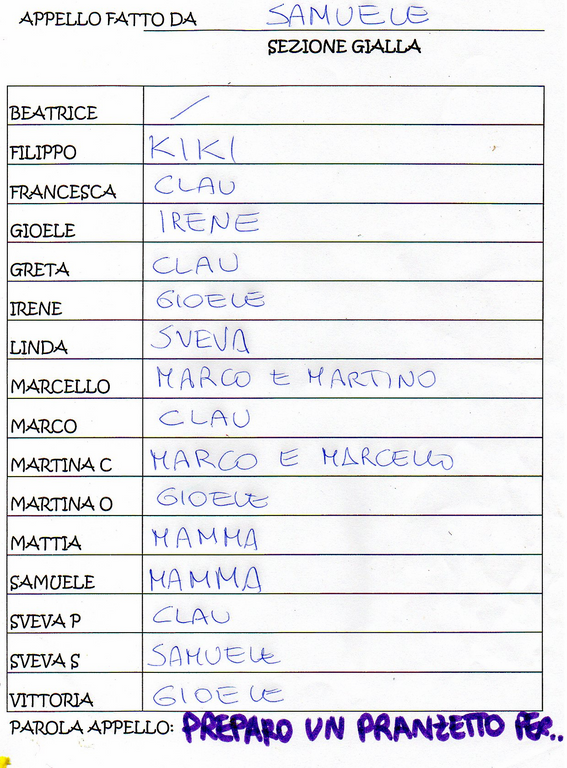 APPELLO FATTO DA SAMUELE
SEZIONE GIALLA
BEATRICE /
FILIPPO KIKI
FRANCESCA CLAU
GIOELE IRENE
GRETA CLAU
IRENE GIOELE
LINDA SVEVA
MARCELLO MARCO E MARTINO
MARCO CLAU
MARTINA C MARCO E MARCELLO
MARTINA O GIOELE
MATTIA MAMMA
SAMUELE MAMMA
SVEVA P CLAU
SVEVA S SAMUELE
VITTORIA GIOELE
PAROLA APPELLO: PREPARO UN PRANZETTO PER..